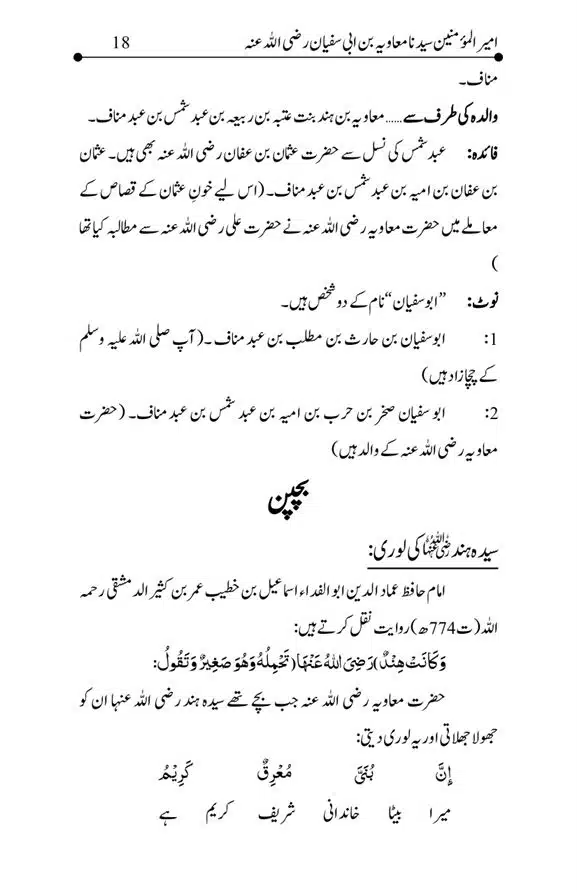 امیر المؤمنین سیدنا معاویہ بن ابی سفیان رضی اللہ عنہ 18
مناف۔
والدہ کی طرف سے ...... معاویہ بن ہند بنت عتبہ بن ربیعہ بن عبد شمس بن عبد مناف۔
فائدہ: عبد شمس کی نسل سے حضرت عثمان بن عفان رضی اللہ عنہ بھی ہیں۔ عثمان
بن عفان بن امیہ بن عبد شمس بن عبد مناف۔ (اس لیے خونِ عثمان کے قصاص کے
معاملے میں حضرت معاویہ رضی اللہ عنہ نے حضرت علی رضی اللہ عنہ سے مطالبہ کیا تھا
)
نوٹ: ”ابو سفیان“ نام کے دو شخص ہیں۔
1: ابوسفیان بن حارث بن مطلب بن عبد مناف ۔( آپ صلی اللہ علیہ وسلم
کے چچازاد ہیں)
2: ابو سفیان صخر بن حرب بن امیہ بن عبد شمس بن عبد مناف۔ (حضرت
معاویہ رضی اللہ عنہ کے والد ہیں)
بچپن
سیدہ ہند رضی اللہ عنہا کی لوری:
امام حافظ عماد الدین ابو الفداء اسماعیل بن خطیب عمر بن کثیر الدمشقی رحمہ
اللہ (ت774ھ) روایت نقل کرتے ہیں:
وَكَانَتْ هِنْدٌ (رَضِيَ اللهُ عَنْهَا) تَحْمِلُهُ وَهُوَ صَغِيْرٌ وَتَقُوْلُ:
حضرت معاویہ رضی اللہ عنہ جب بچے تھے سیدہ ہند رضی اللہ عنہا ان کو
جھولا جھلاتی اور یہ لوری دیتی:
إِنَّ بُنَيَّ مُعْرِقٌ كَرِيْمٌ
میرا بیٹا خاندانی شریف کریم ہے